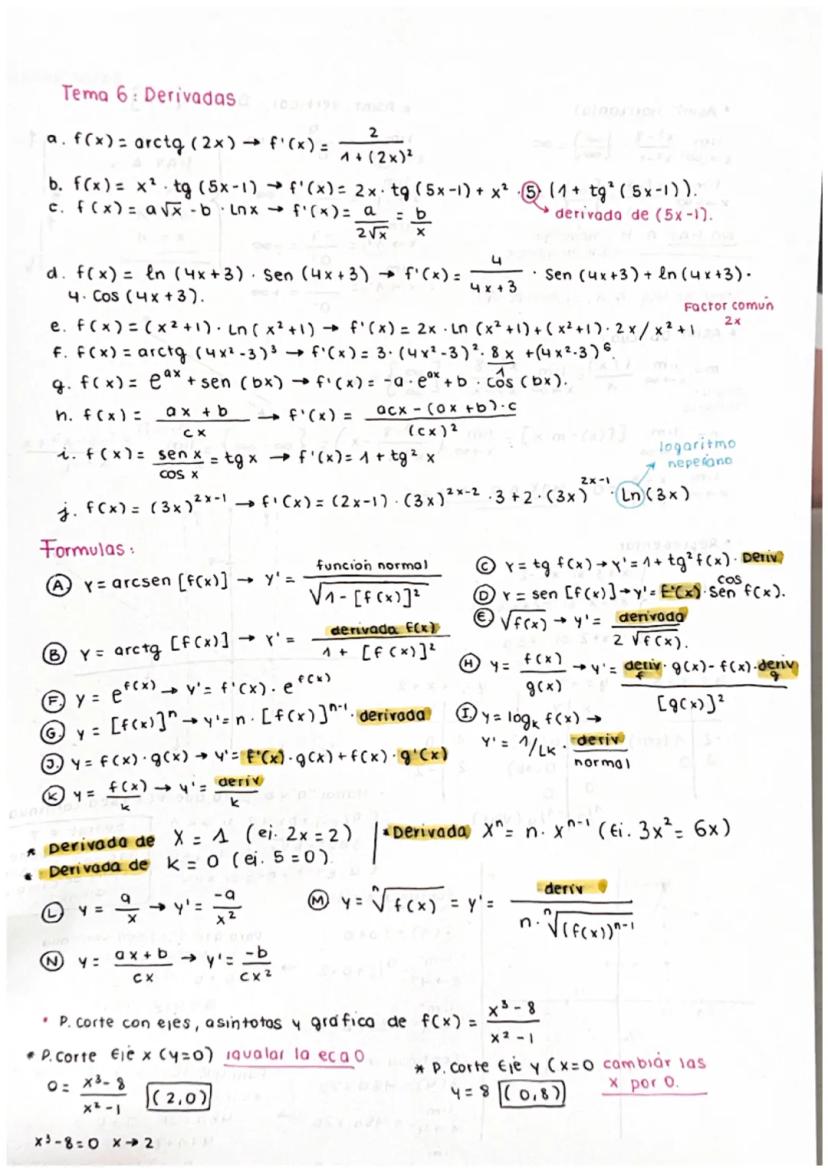 Tema 6: Derivadas
a. f(x) = arctg (2x) → f'(x) = 2 / 1+(2x)²
b. f(x) = x² · tg (5x-1) → f'(x) = 2x · tg (5x-1) + x² · 5 · (1 + tg² (5x-1)).
derivada de (5x-1).
c. f(x) = a√x - b · Lnx → f'(x) = a / 2√x = b / x
d. f(x) = ln (4x+3) · sen (4x+3) → f'(x) = 4 / 4x+3 · sen (4x+3) + ln (4x+3) ·
4 · cos (4x+3).
Factor común
2x
e. f(x) = (x²+1) · Ln (x²+1) → f'(x) = 2x · Ln (x²+1) + (x²+1) · 2x / x²+1
f. f(x) = arctg (4x²-3)³ → f'(x) = 3 · (4x²-3)² · 8x / 1 + (4x²-3)⁶
g. f(x) = e^ax + sen (bx) → f'(x) = -a · e^ax + b · cos (bx).
h. f(x) = ax + b / cx → f'(x) = acx - (ax + b) · c / (cx)²
i. f(x) = sen x / cos x = tg x → f'(x) = 1 + tg² x
logaritmo
neperiano
j. f(x) = (3x)^2x-1 → f'(x) = (2x-1) · (3x)^2x-2 · 3 + 2 · (3x)^2x-1 · Ln (3x)
Formulas:
Ⓐ Y = arcsen [f(x)] → Y' = función normal / √1 - [f(x)]²
Ⓒ Y = tg f(x) → Y' = 1 + tg² f(x) · Deriv
Ⓓ Y = sen [f(x)] → Y' = F'(x) · sen f(x).
cos
Ⓔ √f(x) → Y' = derivada / 2 √f(x).
Ⓑ Y = arctg [f(x)] → Y' = derivada f(x) / 1 + [f(x)]²
Ⓗ Y = f(x) / g(x) → Y' = deriv f · g(x) - f(x) · deriv g / [g(x)]²
Ⓕ y = e^f(x) → y' = f'(x) · e^f(x)
Ⓖ y = [f(x)]ⁿ → y' = n · [f(x)]ⁿ⁻¹ · derivada
Ⓘ y = logₖ f(x) →
Y' = 1/Lk · deriv / normal
Ⓙ y = f(x) · g(x) → y' = F'(x) · g(x) + f(x) · g'(x)
Ⓚ y = f(x) / k → y' = deriv / k
* Derivada de X = 1 (ej. 2x = 2)
* Derivada Xⁿ = n · xⁿ⁻¹ (Ej. 3x² = 6x)
* Derivada de k = 0 (ej. 5 = 0).
Ⓛ y = a / x → y' = -a / x²
Ⓜ y = ⁿ√f(x) = y' = deriv / n · ⁿ√(f(x))ⁿ⁻¹
Ⓝ y = ax + b / cx → y' = -b / cx²
• P. corte con ejes, asíntotas y gráfica de f(x) = x³ - 8 / x² - 1
* P. corte Eje x (y=0) igualar la ec a 0
0 = x³ - 8 / x² - 1 (2,0)
x³ - 8 = 0 x → 2
* P. corte Eje y (x=0 cambiar las
x por 0.
y = 8 (0,8)